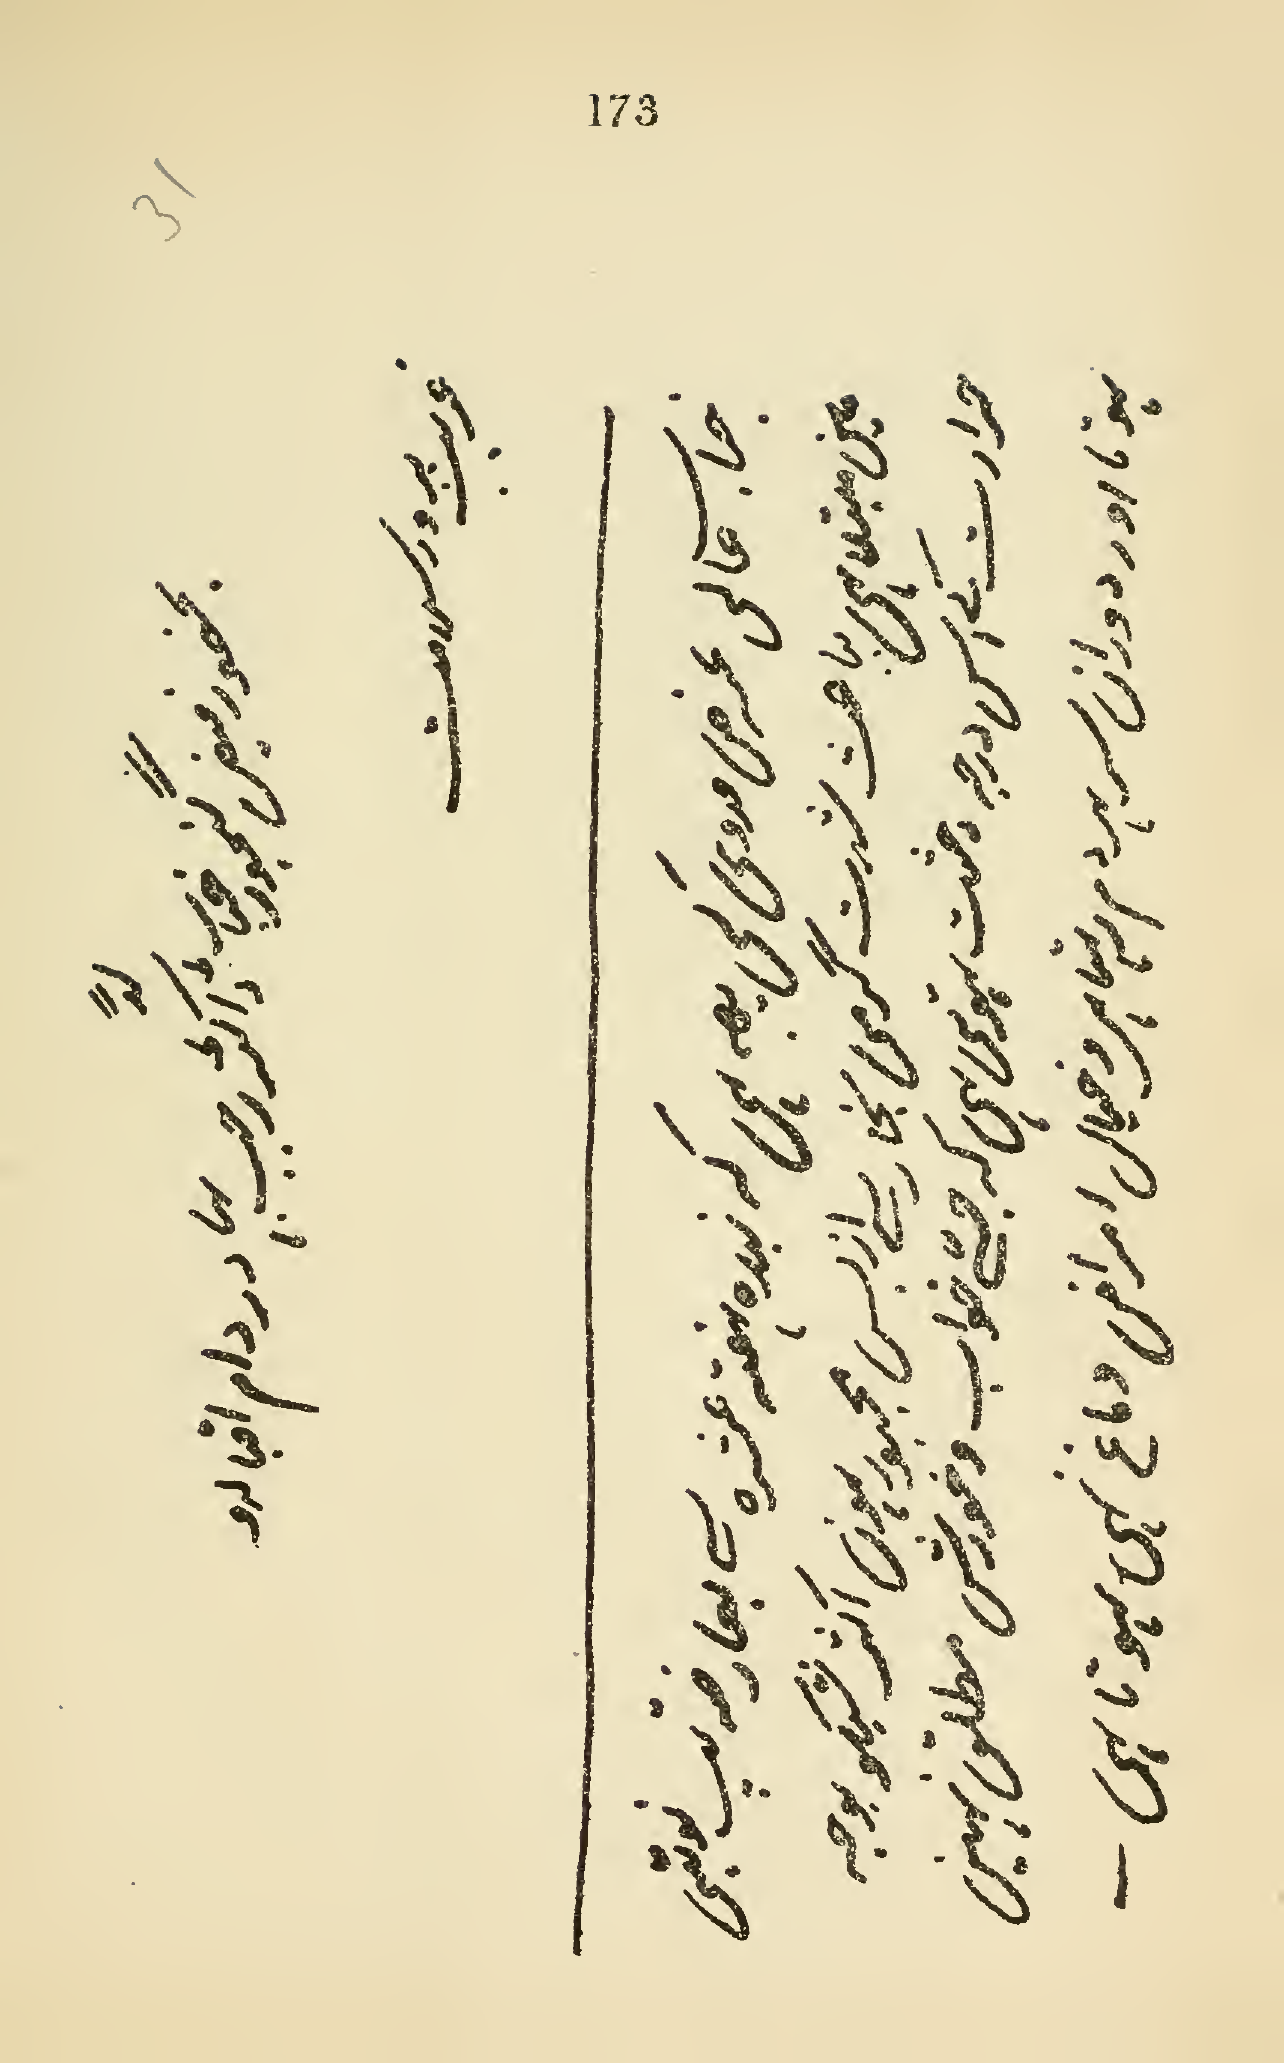 173
31
بحضور فیض گنجور ڈاکٹر صاحب بہادر دام اقبالہ
غریب پرور سلامت
جناب عالی عرض فدوی کی یہہ ہی کہ بندہ ہفتہ عشرہ سے بعارضہ تپ نوبتی
مین مبتلا ہی باعث شدت گرمی بخار سے ازبس مجبور ہون اکثر شبکو بوجہ
حرارت کے اس درجہ ہوتی ہی کہ جسے خواب و خورش مطلق نہین
ہوتا اور دوران سر ہر دم رہتا و خیال امراض دماغ کی ہوتا ہی ۔